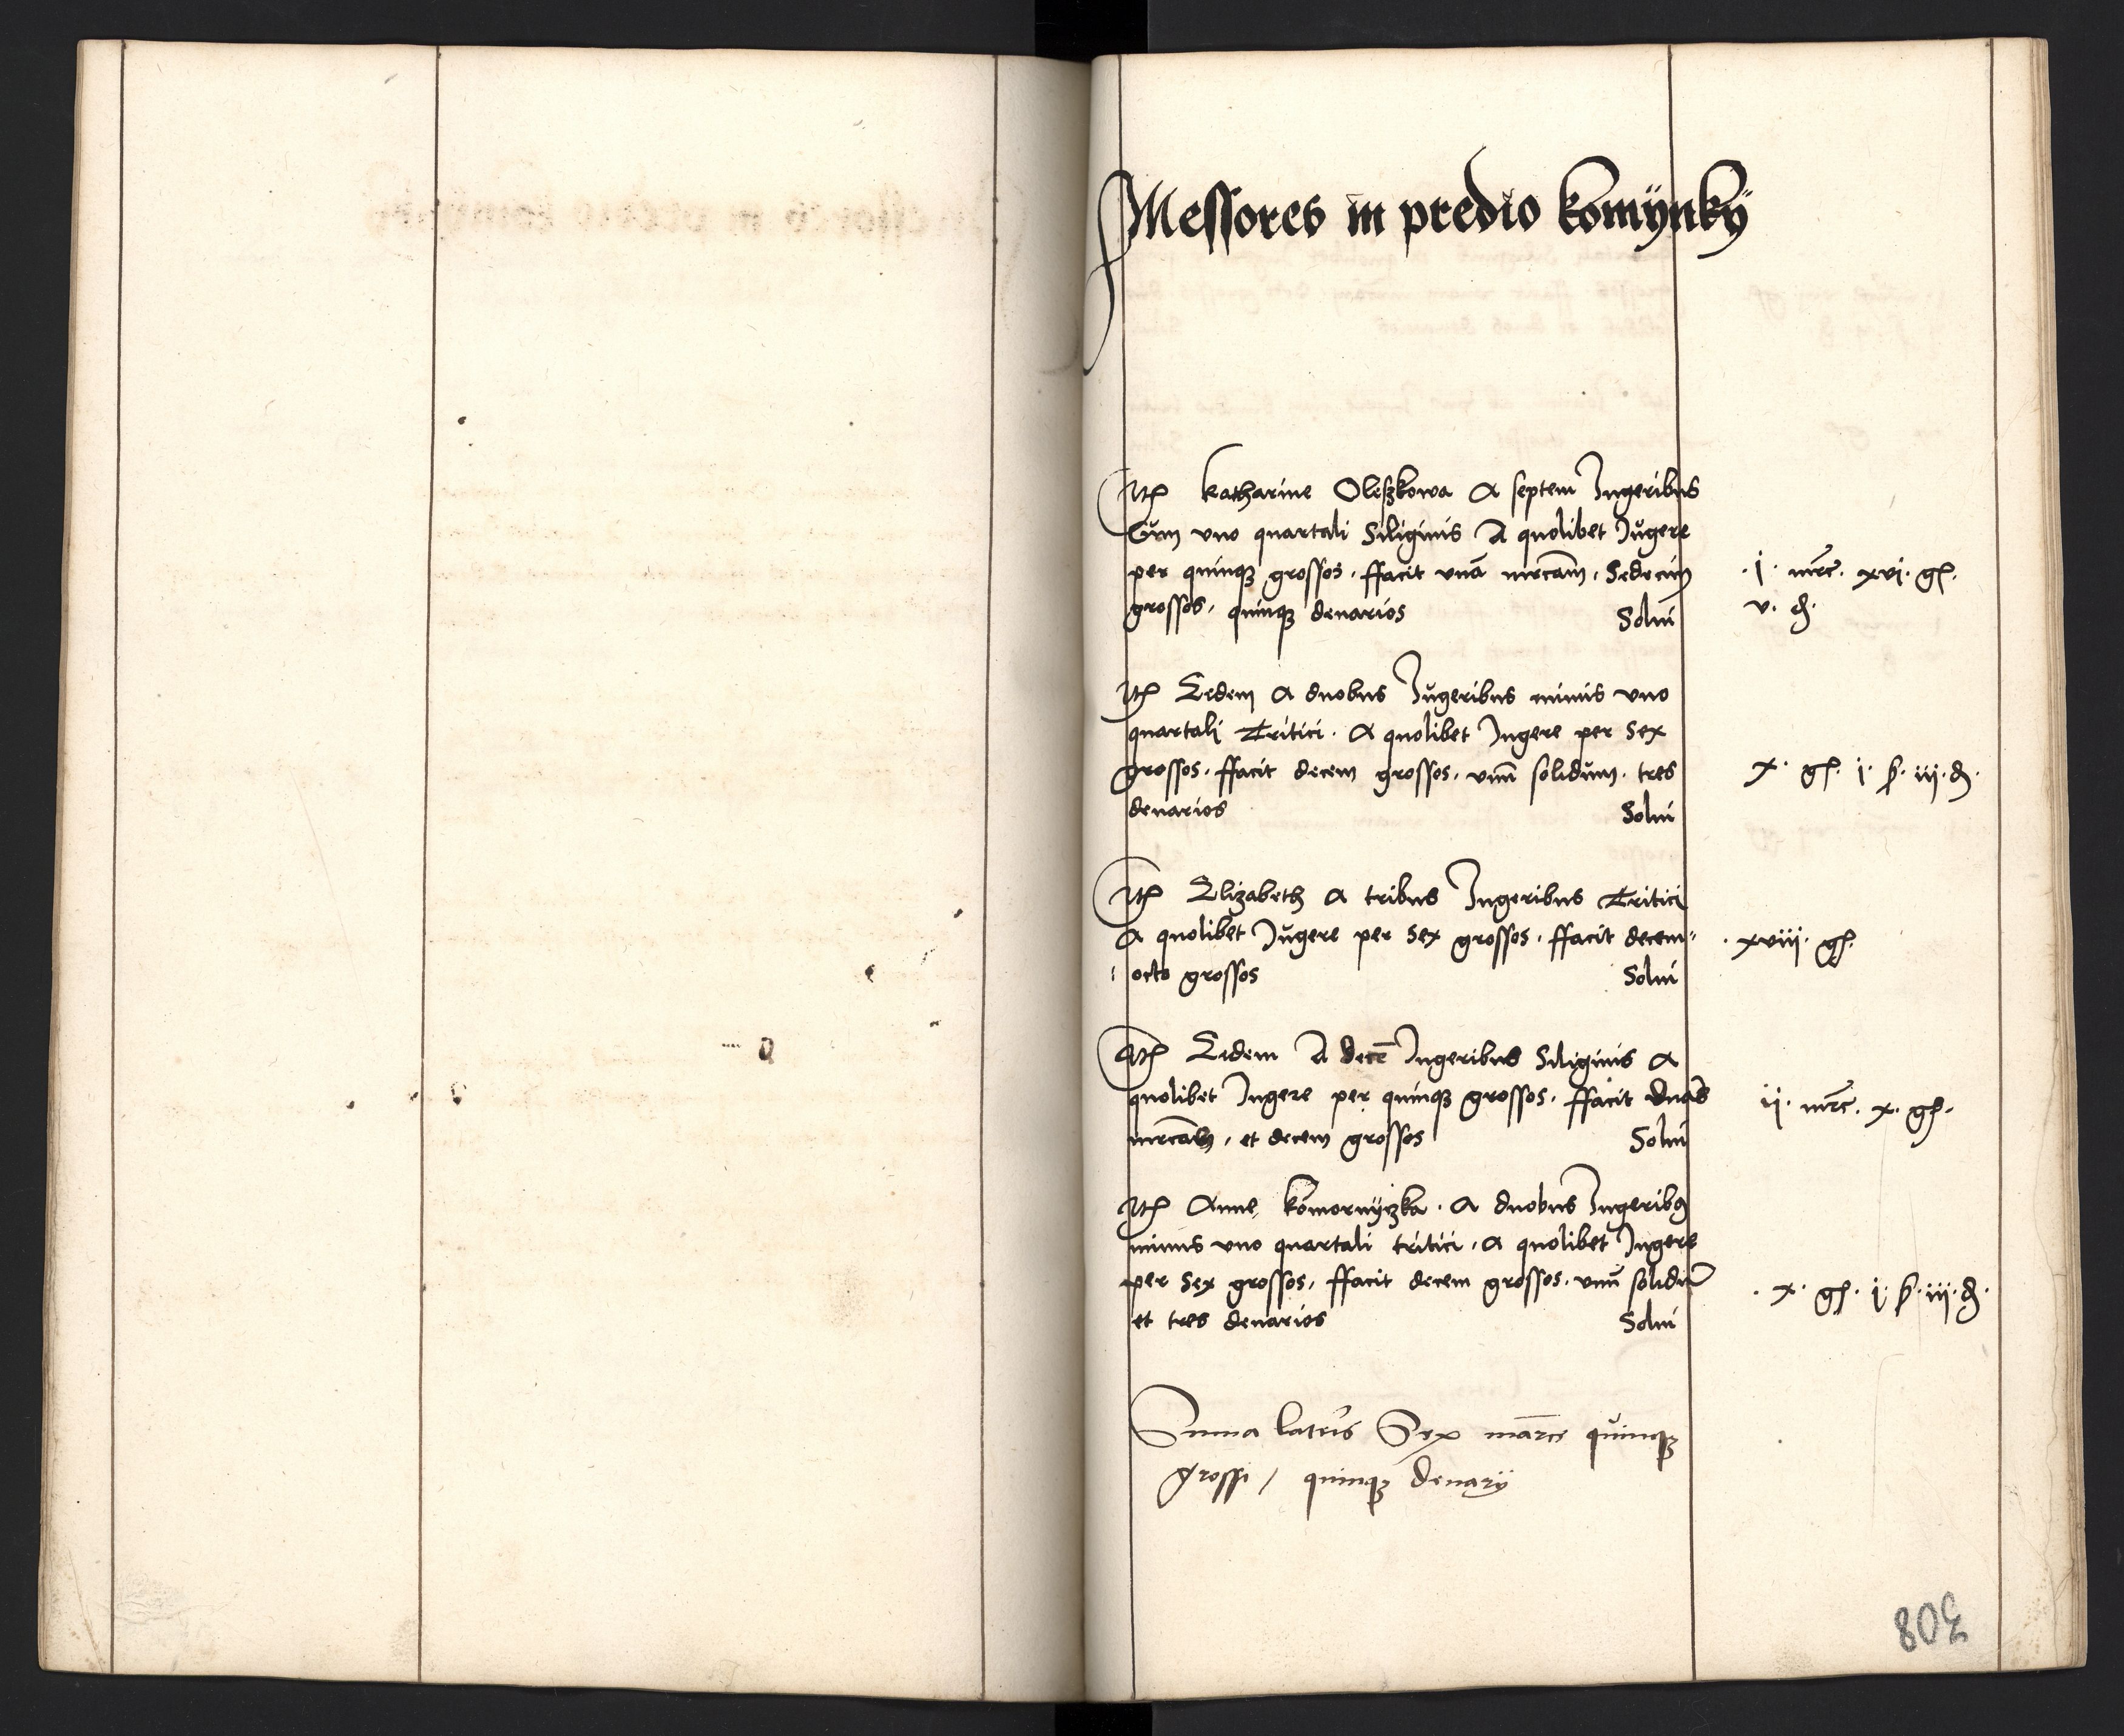 Messores in predio komÿnkÿ
Itꝫ katharine Oleszkowa A septem Jugeribus
Cum vno quartali Siliginis A quolibet Jugere
per quinqꝫ grossos, ffacit vnā mrcam, Sedecim
grossos, quinqꝫ denarios Solui
·i· mrc. xvi· gſ.
v· ₰.
Itꝫ Eidem A duobus Jugeribus minus vno
quartali Tritici. A quolibet Jugere per Sex
grossos, ffacit decem grossos, vnū solidum, tres
denarios Solui
x· gſ. i· ẞ· iii·₰.
Itꝫ Elizabeth A tribus Jugeribus Tritici
A quolibet Jugere per Sex grossos, ffacit decem"
octo grossos Solui
· xviii· gſ.
Itꝫ Eidem A decē Jugeribus Siliginis A
quolibet Jugere per quinqꝫ grossos, ffacit duas
mrcas, et decem grossos Solui
ii· mrc. x· gſ.
Itꝫ Anne komornÿczka · A duobus Jugeribꝰ
minus vno quartali tritici, A quolibet Jugere
per Sex grossos, ffacit decem grossos, vnū solidū
et tres denarios Solui
· x· gſ· i· ẞ· iii·₰·
Suma lateris Sex marce quinqꝫ
grossi / quinqꝫ denarÿ
308